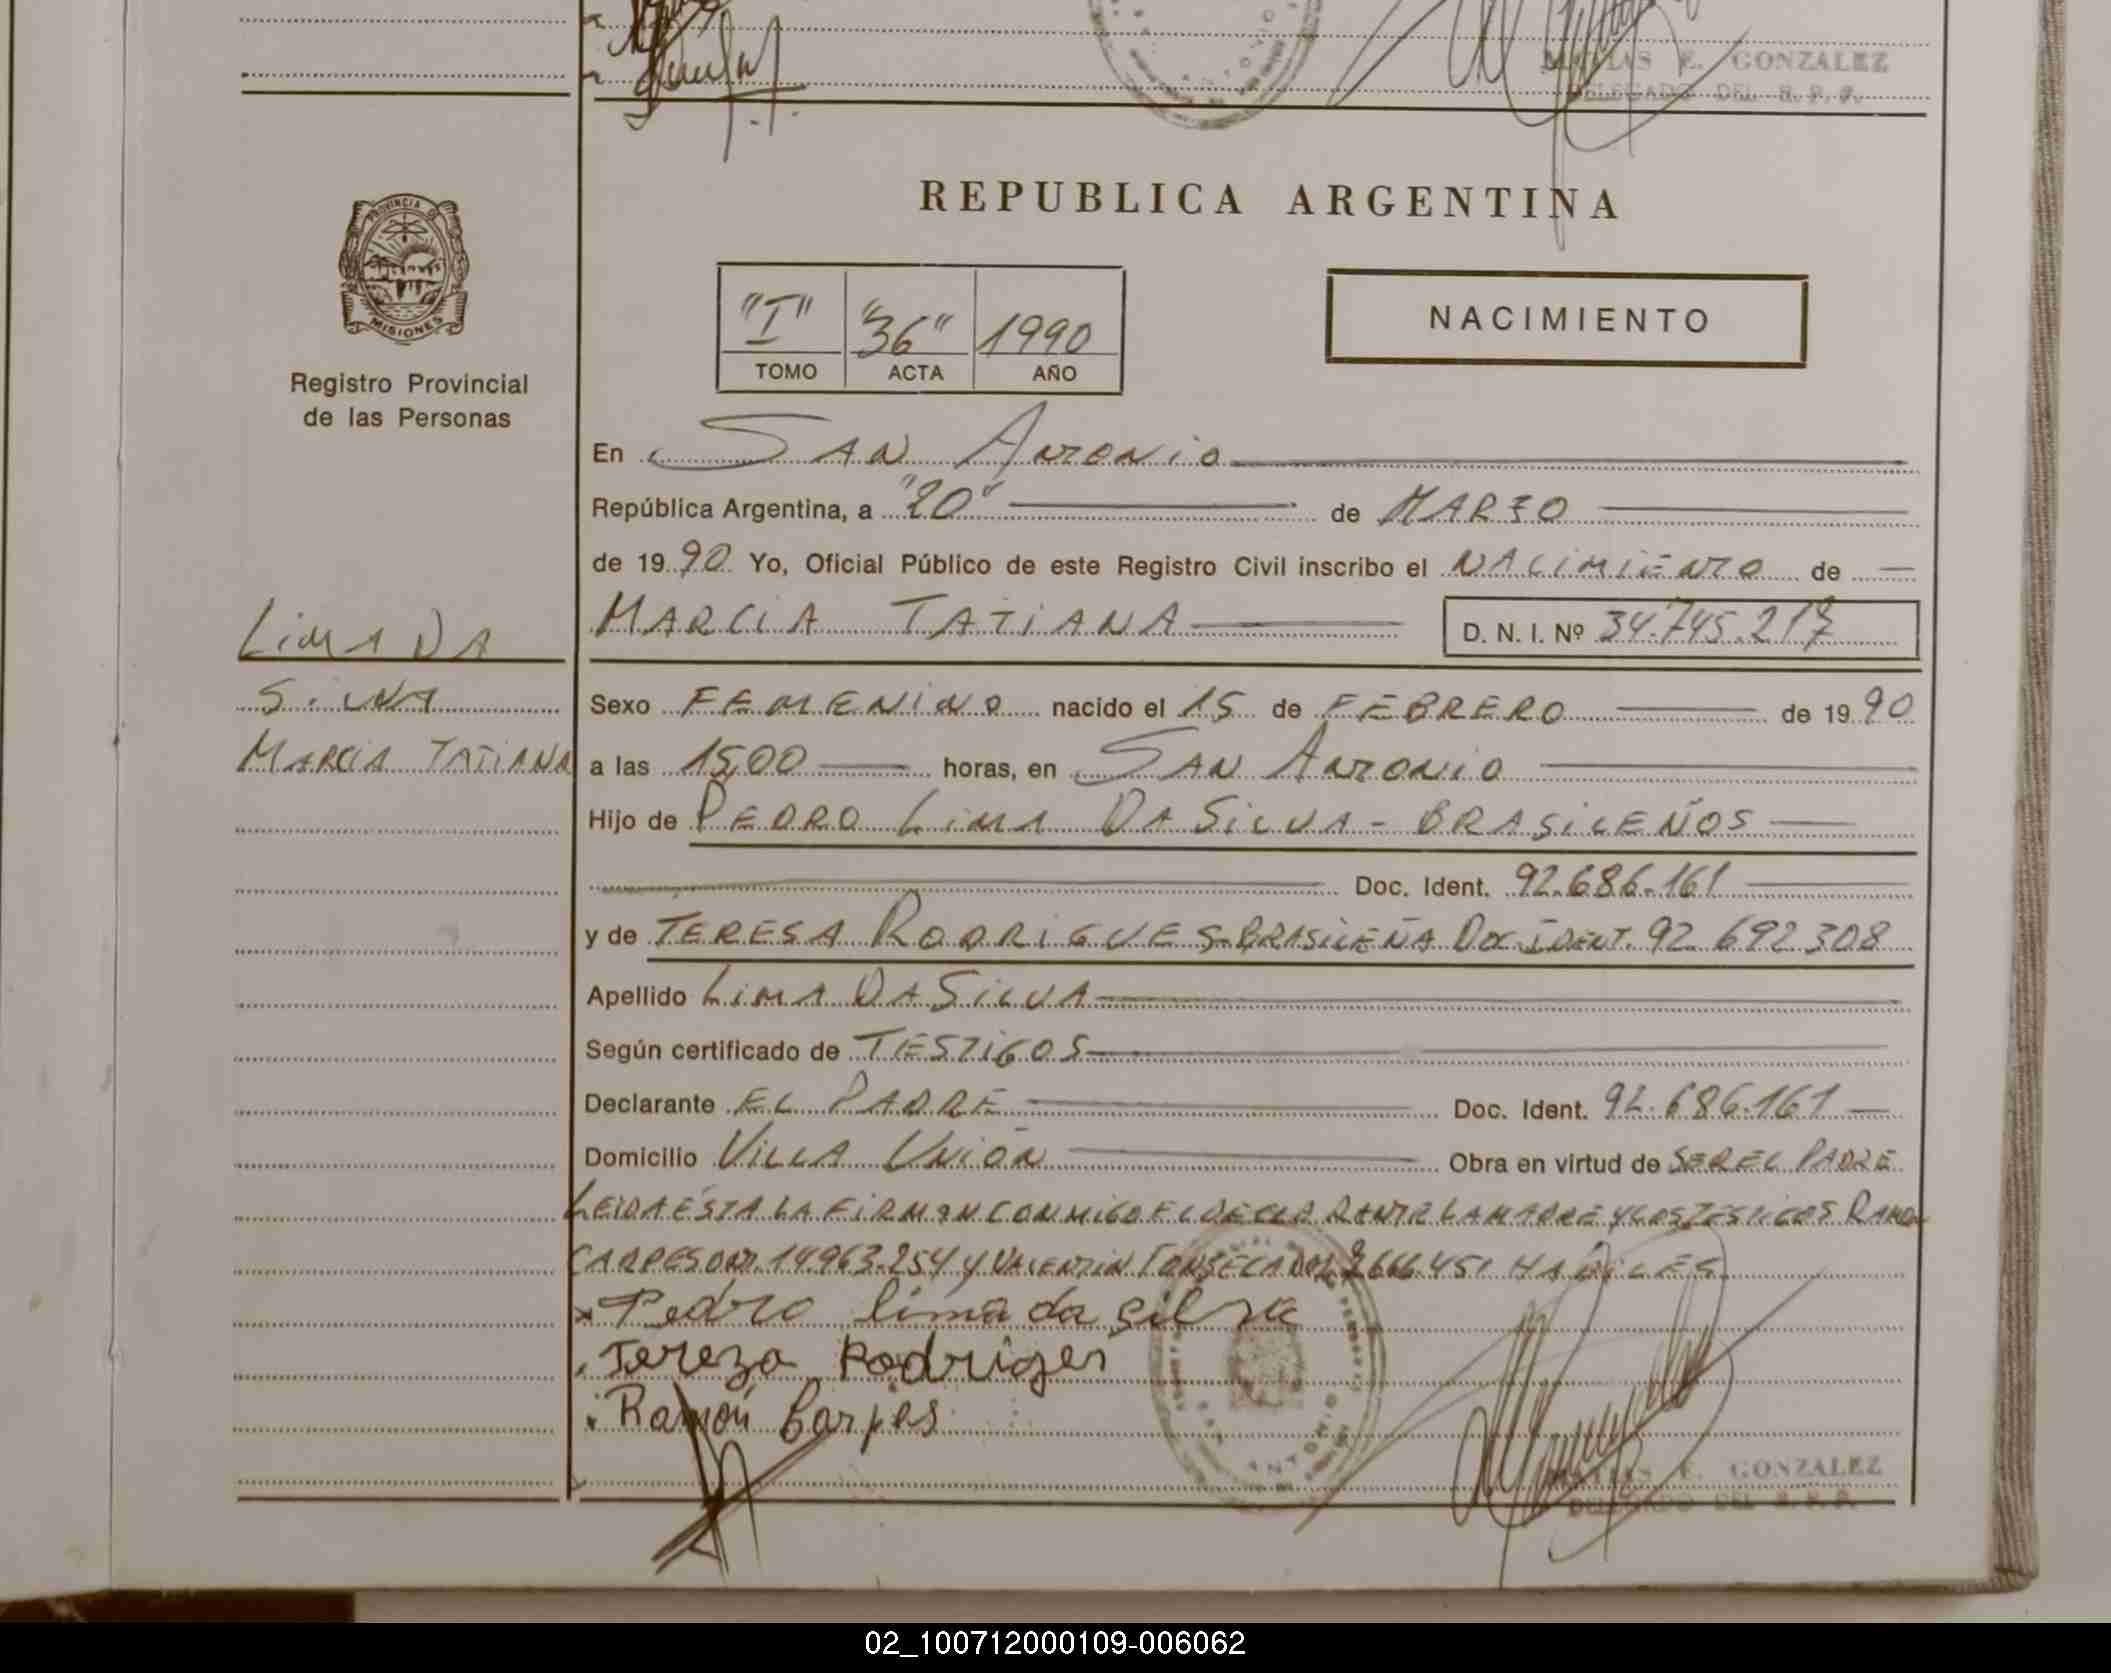 MATIAS E. GONZALEZ
DELEGADO DEL R. P. P.
PROVINCIA DE
MISIONES
Registro Provincial
de las Personas
REPUBLICA ARGENTINA
"I" "36" 1990
TOMO ACTA AÑO
NACIMIENTO
En SAN ANTONIO
República Argentina, a "20" de MARZO
de 1990 Yo, Oficial Público de este Registro Civil inscribo el NACIMIENTO de
MARCIA TATIANA D. N. I. Nº 34.745.217
LIMA DA
SILVA
MARCIA TATIANA
Sexo FEMENINO nacido el 15 de FEBRERO de 1990
a las 15,00 horas, en SAN ANTONIO
Hijo de PEDRO LIMA DA SILVA - BRASILEÑOS
Doc. Ident. 92.686.161
y de TERESA RODRIGUES-BRASILEÑA DOC. IDENT. 92.692.308
Apellido LIMA DA SILVA
Según certificado de TESTIGOS
Declarante EL PADRE Doc. Ident. 92.686.161
Domicilio VILLA UNIÓN Obra en virtud de SER EL PADRE
LEIDA ESTA LA FIRMAN CONMIGO EL DECLARANTE LA MADRE Y LOS TESTIGOS RAMON
CARPES DNI. 14.963.254 Y VALENTIN FONSECA 666.451 HABILES
x Pedro lima da silva
Tereza Rodriges
Ramón Carpes
SAN ANTONIO
MATIAS E. GONZALEZ
DELEGADO DEL R. P. P.
02_100712000109-006062